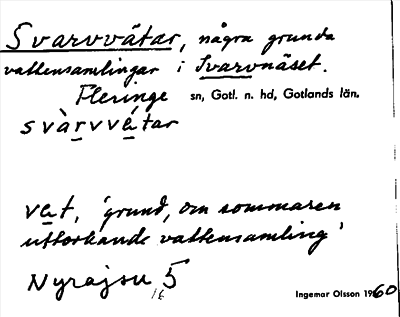 Svarvvätar, några grunda
vattensamlingar i Svarvnäset.
Fleringe sn, Gotl. n. hd, Gotlands län.
svàrvvétar
vet, 'grund, om sommaren
uttorkande vattensamling'
Nyrajsu 5
16
Ingemar Olsson 1960